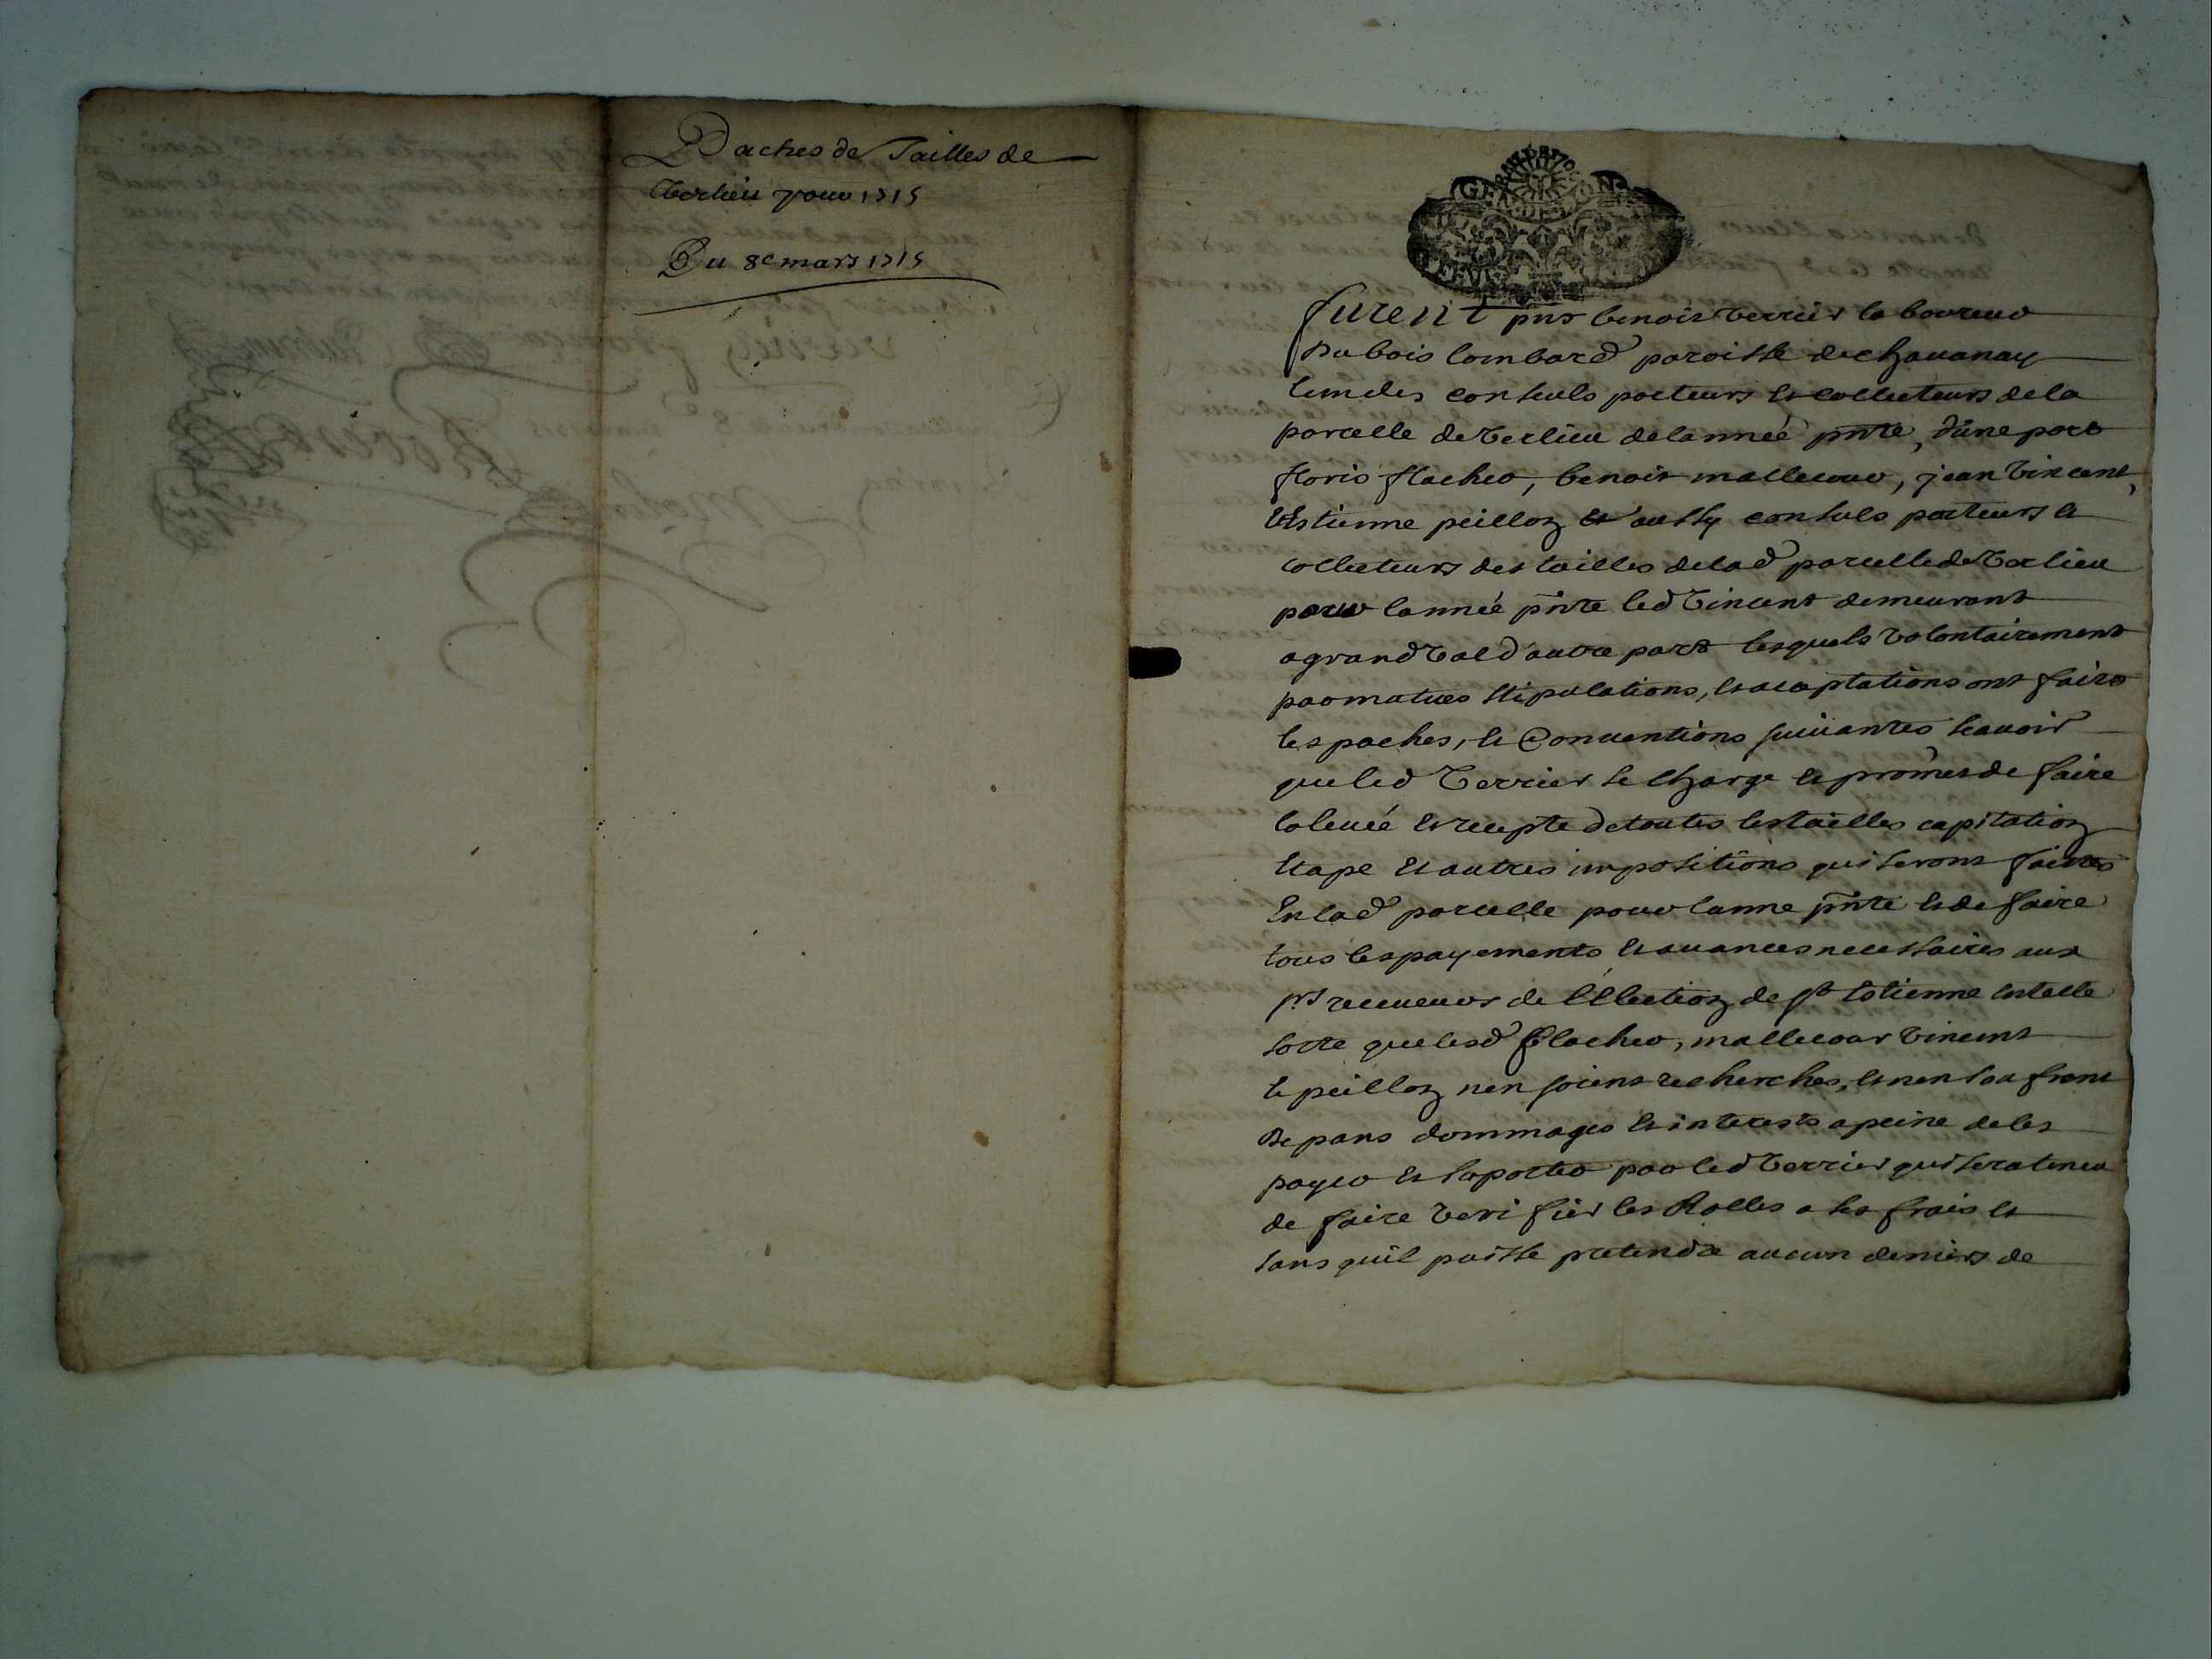 Paches de Tailles de
Verlieu pour 1715
Du 8e mars 1715
GENERALITE DE LYON
furent pnts benoist Verrier laboureur
du bois lombard paroisse de chavanay
lun des consuls porteurs et collecteurs de la
parcelle de Verlieu de lannée pnte, d'une part
floris flacher, benoist mallecour, jean Vincent,
Estienne peilloz et aussy consuls porteurs et
collecteurs des tailles de lad parcelle de Verlieu
pour lannée pnte led Vincent demeurant
a grand Val d'autre part lesquels volontairement
par mutues stipulations, et acaptations ont faits
les paches, et Conventions suivantes scavoir
que led Verrier se charge et promes de faire
la levée et recepte de toutes les tailles capitation
etape et autres impositions qui seront faites
En lad parcelle pour lanne pnte et de faire
tous les payements et avances necessaires aux
srs receveurs de l'Election de st Estienne en telle
sorte que lesd flacher, mallecour Vincent
et peilloz nen soient recherches, et nen souffrent
depans dommages et interests a peine de les
payer et suporter par led Verrier qui sera tenu
de faire Verifier les Rolles a ses frais et
sans quil puisse pretendre aucun deniers de